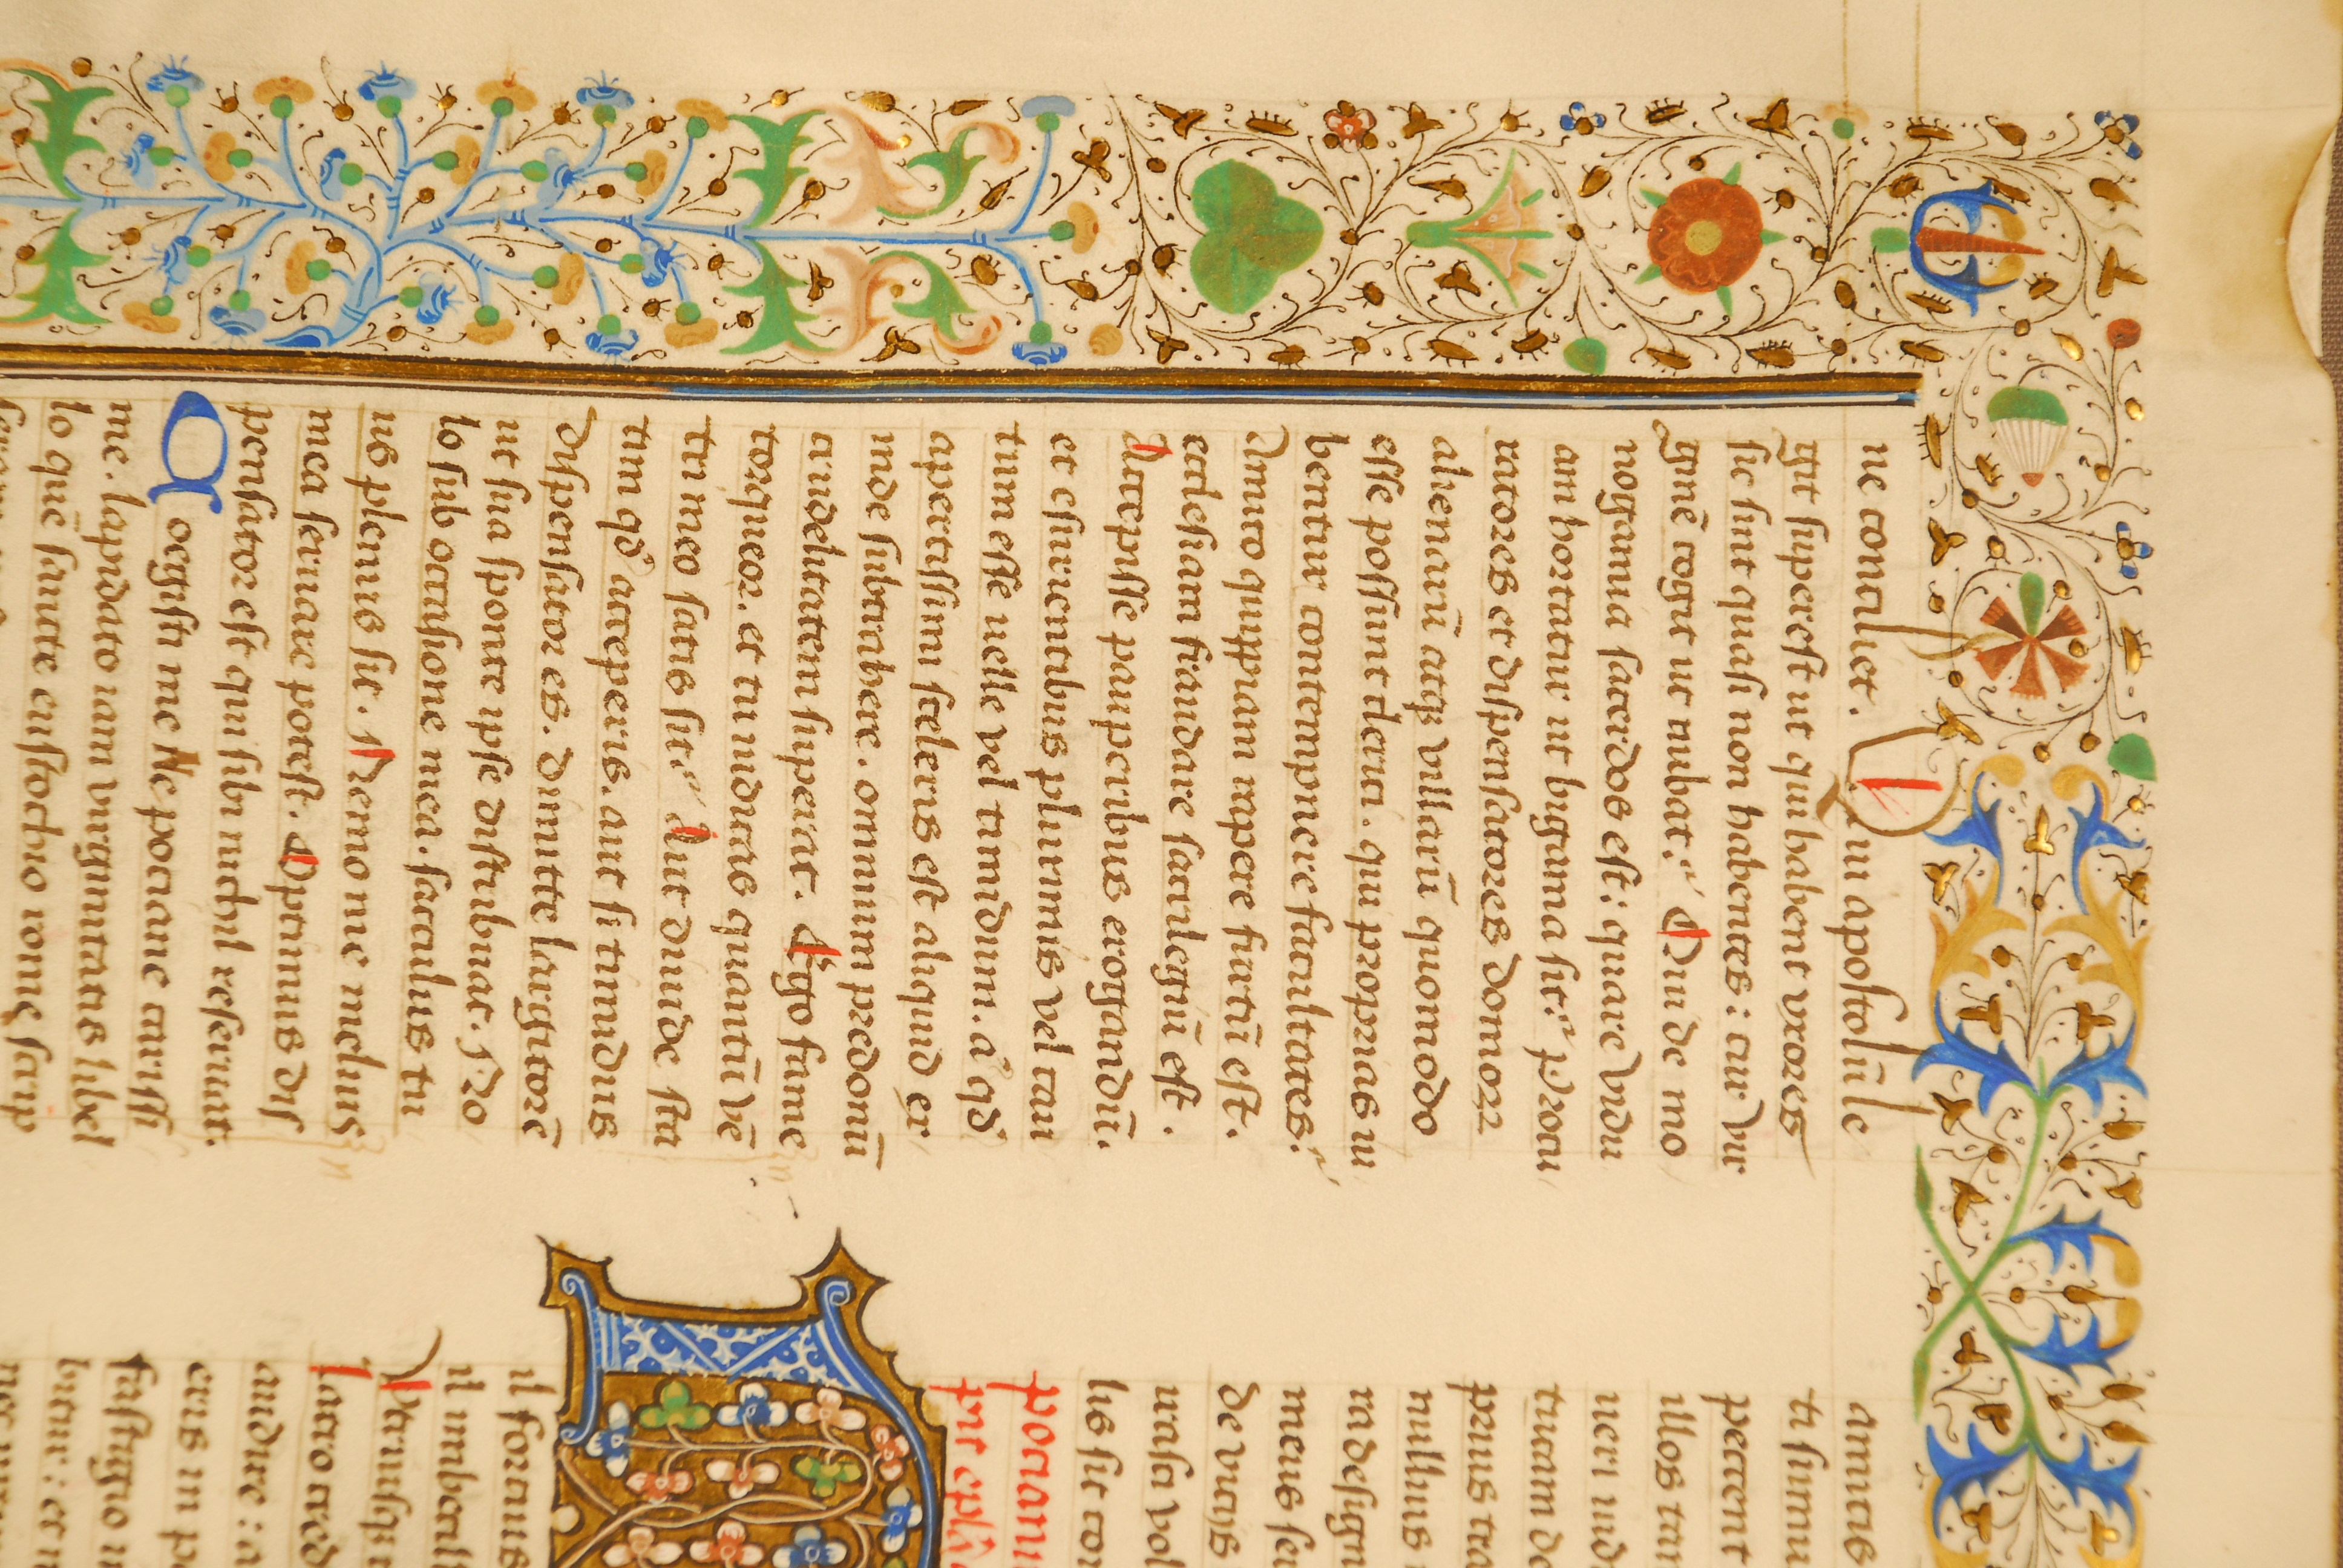 ne conciliet. Qui apostolū le
git superest ut qui habent vxores
sic sint quasi non habentes: cur vir
ginē cogit ut nubat? Qui de mo
nogamia sacerdos est: quare vidu
am hortatur ut bigama sit? Procu
ratores et dispensatores domoꝝ
alienarū atqꝫ villarū quomodo
esse possunt clerici. qui proprias iu
bentur contempnere facultates?
Amico quippiam rapere furtū est.
ecclesiam fraudare sacrilegiū est.
Accepisse pauperibus erogandū.
et esurientibus plurimis vel cau
tum esse uelle vel timidum. a' qd'
apertissimi sceleris est aliquid ex
inde subtrahere. omnium predonū
crudelitatem superat. Ego fame
torqueor. et tu iudicas quantū vē
tri meo satis sit? Aut diuide sta
tim qd' acceperis. aut si timidus
dispensator es. dimitte largitorē
ut sua sponte ipse distribuat. No
lo sub occasione mea. sacculus tu
us plenus sit. Nemo me melius
mea seruare potest. Optimus dis
pensator est qui sibi nichil reseruat.
Coegisti me Nepociane carissi
me. lapidato iam virginitatis libel
lo quē sancte eustochio rome scrip
amicis
ti sumu
peccent
illos tan
ueri iud
tuam de
prius tra
nullus
ra desigu
meus ser
de viciis
urasci vol
lis sit con
pociani
pit epl'a
il forcius
il imbecill
Vtriusqꝫ
sacro cred
audire: a
eris in pe
fastigio u
buitur: et